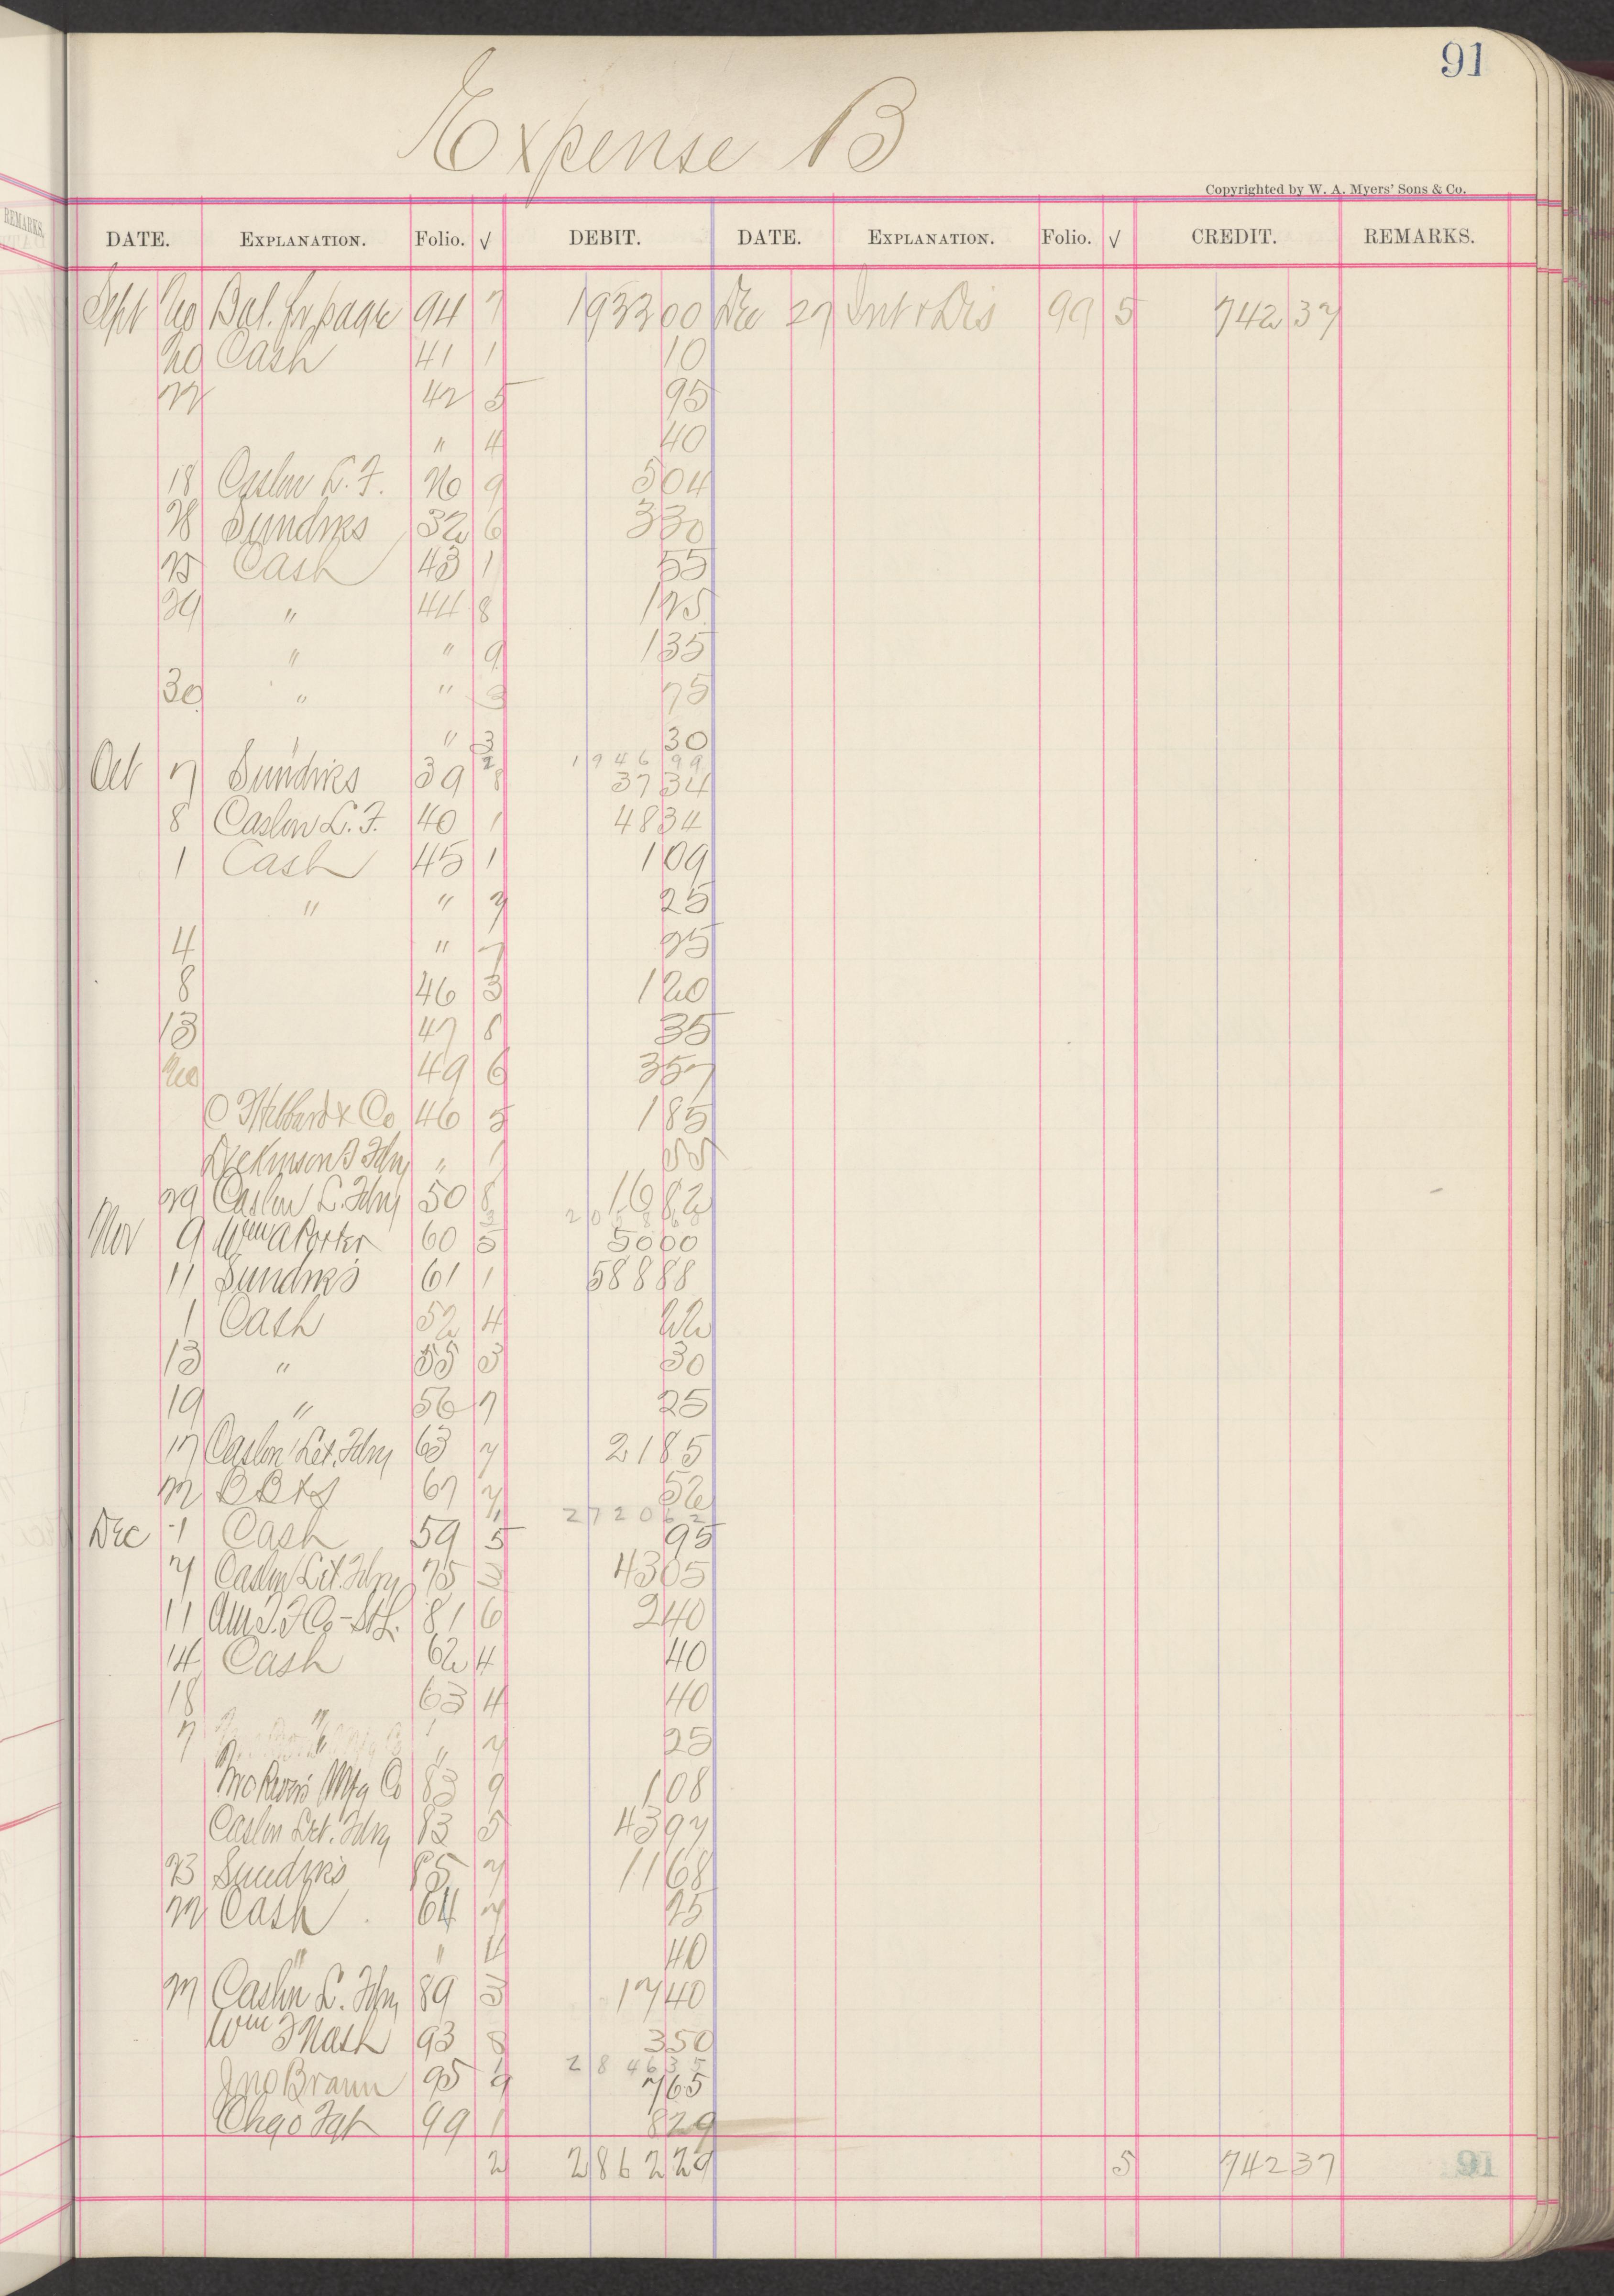 91
Expense B
Copyrighted by W. A. Myers' Sons & Co.
REMARKS.
DATE. EXPLANATION. Folio. √ DEBIT. DATE. EXPLANATION. Folio. √ CREDIT. REMARKS.
Sept Bal. fr page 94 7 1933 00 Dec 27 Int & Dis 99 5 742 37
20 Cash 41 1 10
42 5 95
" 4 40
18 Caslon L. F. 9 5 04
Sundries 32 6 3 30
Cash 43 1 55
29 " 44 8 1 25
" " 9 1 35
30 " " 3 75
" 3 30
1946 99
Oct 7 Sundries 39 8 37 34
8 Caslon L. F. 40 1 48 34
1 Cash 45 1 1 09
" " 7 25
4 " 7 25
8 46 3 1 20
13 47 8 35
49 6 3 57
& Co 46 5 1 85
Dickinson "
29 Caslon L. Fdry 50 8 16 82
Nov 9 Wm A Porter 60 5 50 00
11 Sundries 61 1 588 88
1 Cash 52 4 22
13 " 55 3 30
19 " 56 7 25
17 Caslon Let. Fdry 63 7 21 85
67 7 52
2720 62
Dec 1 Cash 59 5 95
7 Caslon Let. Fdry 75 3 43 05
11 Am. T. F Co - 81 6 2 40
14 Cash 62 4 40
18 " 63 4 40
7 " " 7 25
Mfg Co 83 9 1 08
Caslon Let. Fdry 83 5 43 97
23 Sundries 85 7 11 68
Cash 64 7 25
" " 4 40
27 Caslon L. Fdry 89 3 17 40
Wm Mash 93 8 3 50
2846 35
Jno Braun 95 9 7 65
Chgo 99 1 8 29
2 2862 29 5 742 37
91